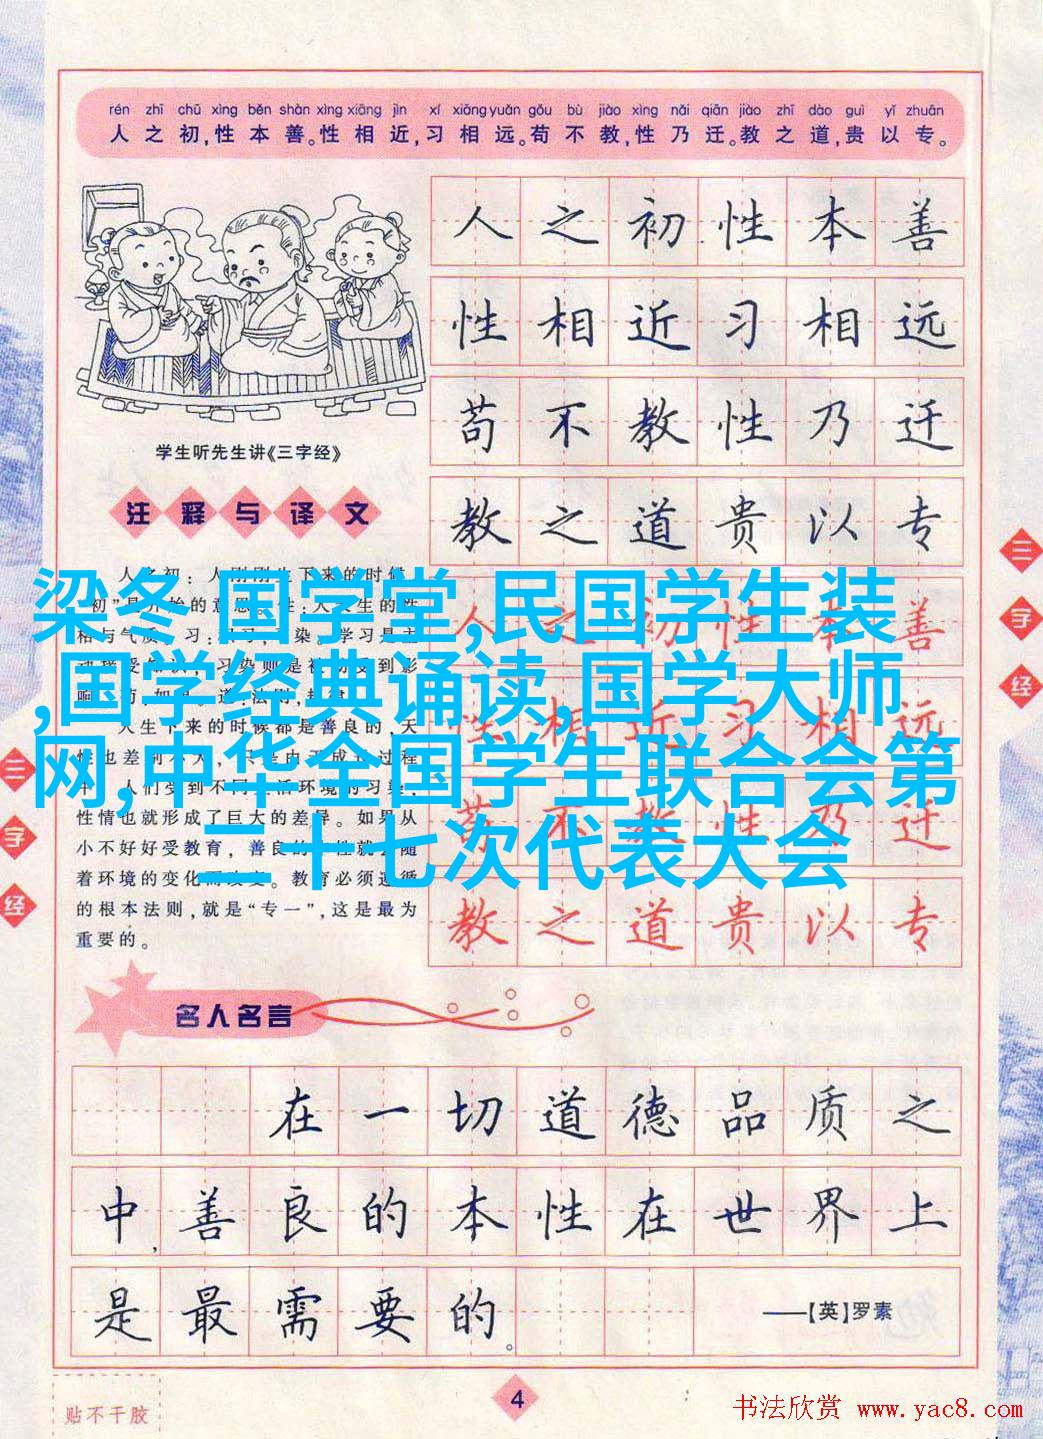 rén zhī chū xìng běn shàn xìng xiāng jìn xí xiāng yuǎn gǒu bù jiào xìng nǎi qiān jiào zhī dào guì yǐ zhuān
人之初,性本善。性相近,习相远。苟不教,性乃迁。教之道,贵以专。
人之初性本善
性相近习相远
苟不教性乃迁
教之道贵以专
学生听先生讲《三字经》
注释与译文
梁冬 国学堂,民国学生装
,国学经典诵读,国学大师
网,中华全国学生联合会第
二十七次代表大会
人生下来的时候都是善良的,天
性情也就形成了巨大的差异。如果从
小不好好受教育,善良的
着环境的变化而改变。教育必须遵循
的根本法则,就是“专一”,这是最为
重要的。
教之道贵以专
三字经
三字经
名人名言
在一切道德品质之
中,善良的本性在世界上
是最需要的。
——【英】罗素
4
贴不干胶
书法欣赏 www.yac8.com